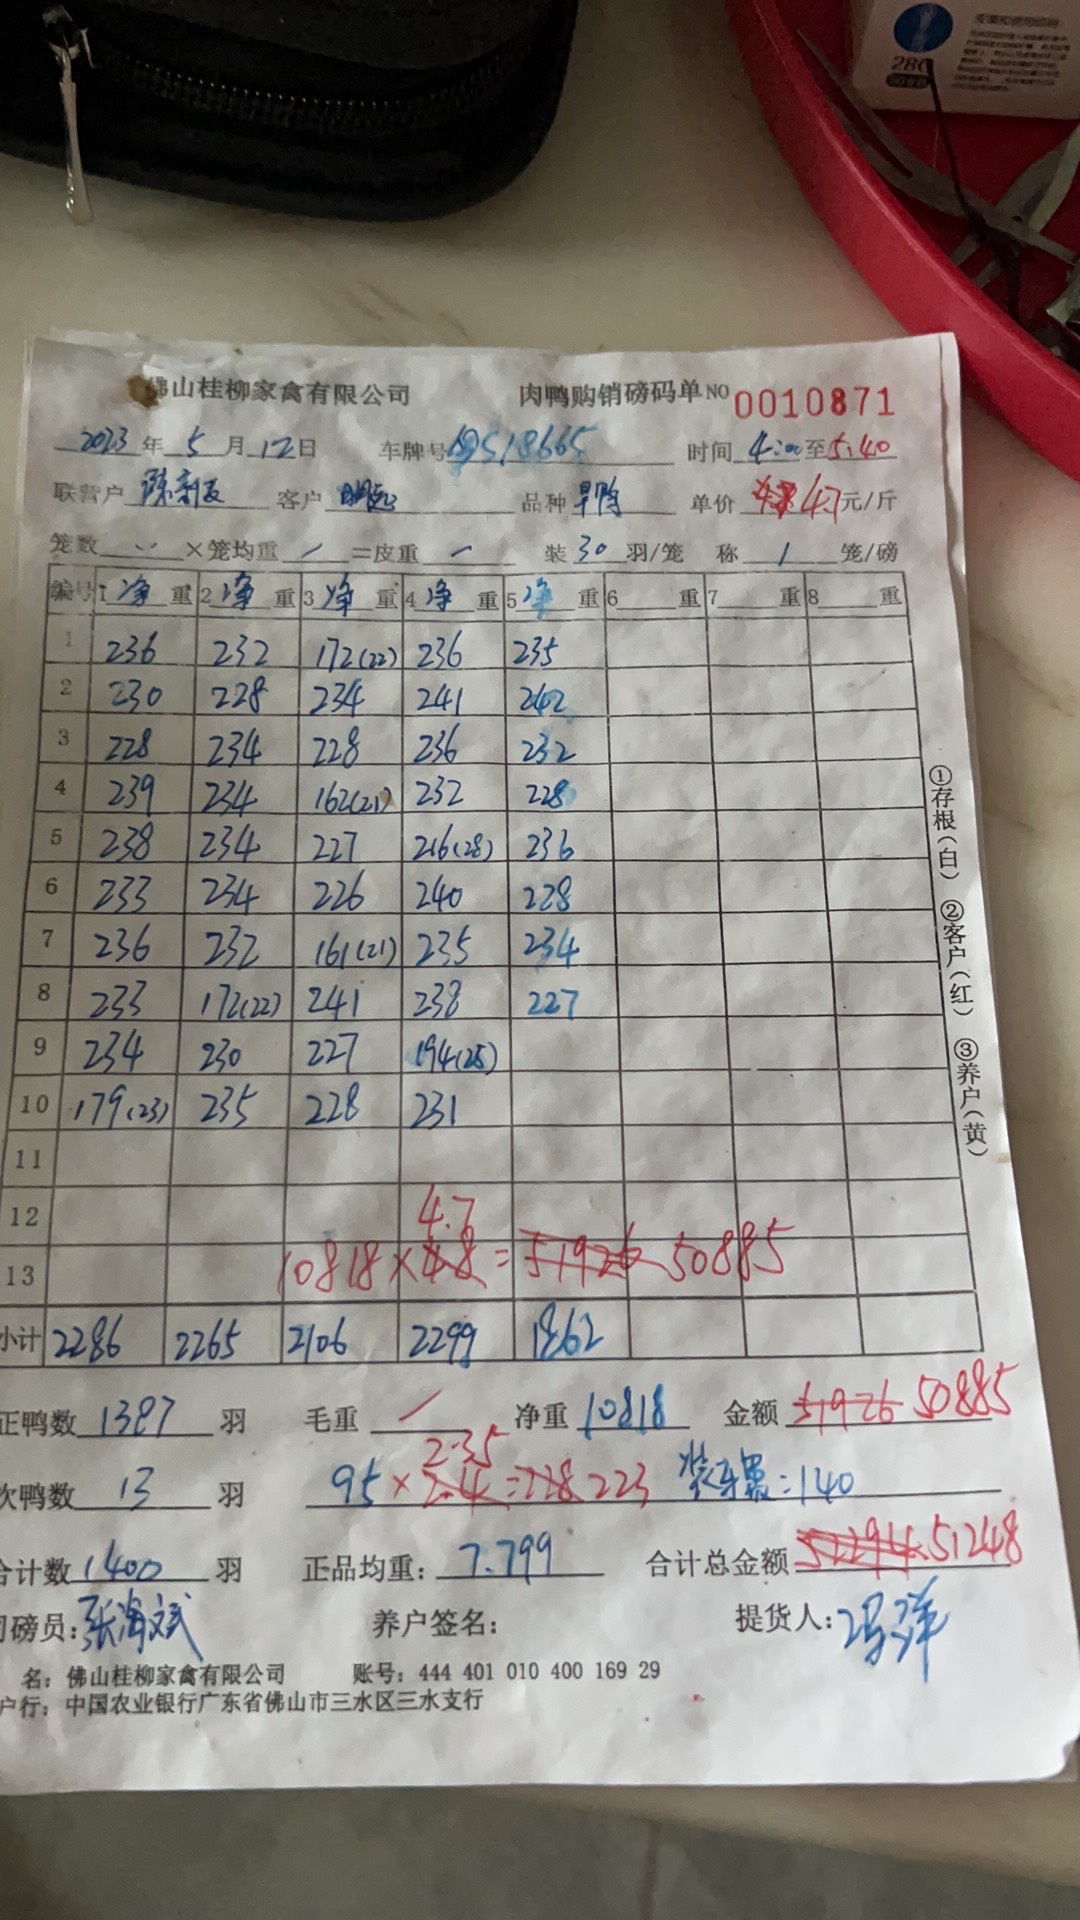 280
佛山桂柳家禽有限公司 肉鸭购销磅码单 NO 0010871
2023 年 5 月 12 日 车牌号 粤S18665 时间 4:00 至 5:40
联营户 陈新友 客户 品种 旱鸭 单价 4.8 4.7 元/斤
笼数 × 笼均重 = 皮重 装 30 羽/笼 称 1 笼/磅
编号 1 净 重 2 净 重 3 净 重 4 净 重 5 净 重 6 重 7 重 8 重
1 236 232 172(22) 236 235
2 230 228 234 241 242
3 228 234 228 236 232
4 239 234 162(21) 232 228
5 238 234 227 216(28) 236
6 233 234 226 240 228
7 236 232 161(21) 235 234
8 233 172(22) 241 238 227
9 234 230 227 194(25)
10 179(23) 235 228 231
11
12 4.7
13 10818×4.8=51926 50885
小计 2286 2265 2106 2299 1862
正鸭数 1387 羽 毛重 / 净重 10818 金额 51926 50885
2.35
次鸭数 13 羽 95×2.4=228 223 装车费:140
合计数 1400 羽 正品均重: 7.799 合计总金额 52294 51248
司磅员: 张海斌 养户签名: 提货人: 冯洋
名: 佛山桂柳家禽有限公司 账号: 444 401 010 400 169 29
户行: 中国农业银行广东省佛山市三水区三水支行
①存根(白) ②客户(红) ③养户(黄)